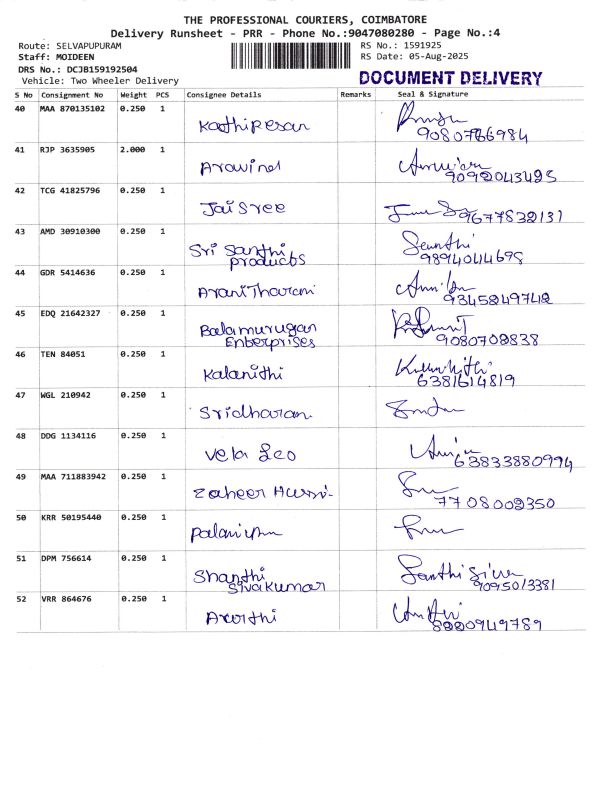 THE PROFESSIONAL COURIERS, COIMBATORE
Delivery Runsheet - PRR - Phone No.:9047080280 - Page No.:4
Route: SELVAPUPURAM
RS No.: 1591925
Staff: MOIDEEN
RS Date: 05-Aug-2025
DRS No.: DCJB159192504
Vehicle: Two Wheeler Delivery
DOCUMENT DELIVERY
S No Consignment No Weight PCS Consignee Details Remarks Seal & Signature
40 MAA 870135102 0.250 1
Kathiresan
41 RJP 3635905 2.000 1
Aravind
9092043495
42 TCG 41825796 0.250 1
Jaisree
9677832131
43 AMD 30910300 0.250 1
Sri Santhi Santhi
products 9894044698
44 GDR 5414636 0.250 1
AraniTharani
9345249742
45 EDQ 21642327 0.250 1
Balamurugan
Enterprises 9080708838
46 TEN 84051 0.250 1
Kalanithi
6381614819
47 WGL 210942 0.250 1
Sridharan
48 DDG 1134116 0.250 1
Vela Leo
63833880994
49 MAA 711883942 0.250 1
Zaheer
7708009350
50 KRR 50195440 0.250 1
51 DPM 756614 0.250 1
Shanthi Santhi
Sivakumar 9095013381
52 VRR 864676 0.250 1
8220949789